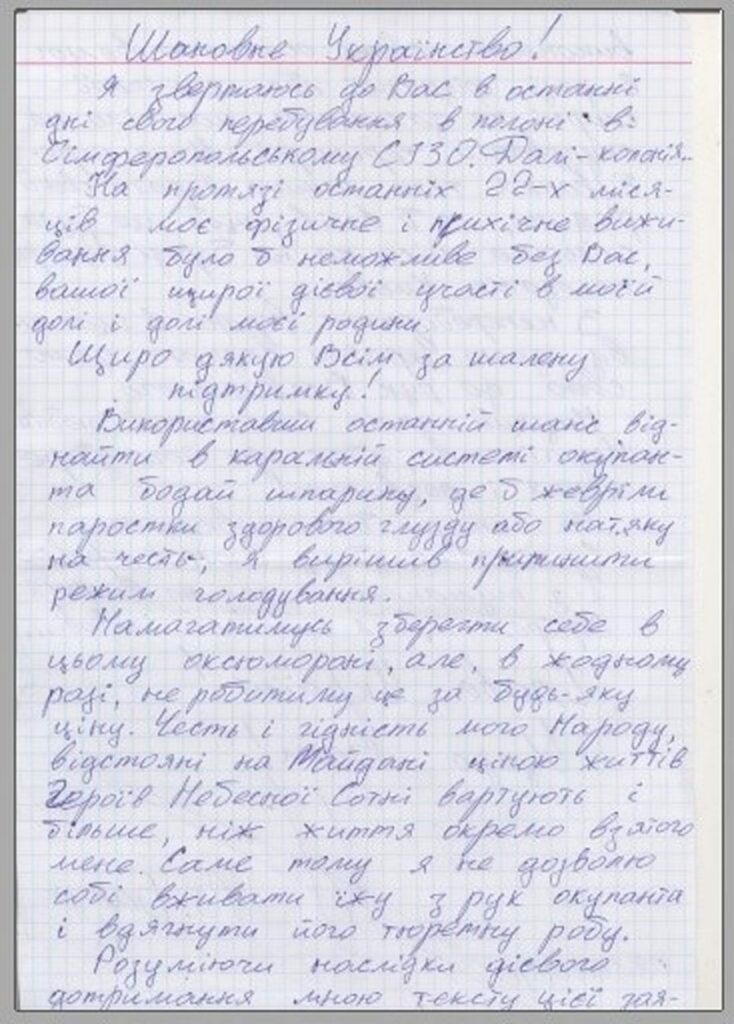 Шановне Українство!
Я звертаюсь до Вас в останні
дні свого перебування в полоні в
Сімферопольському СІЗО. Далі - колонія..
На протязі останніх 22-х міся-
ців моє фізичне і психічне вижи-
вання було б неможливе без Вас,
вашої щирої дієвої участі в моїй
долі і долі моєї родини.
Щиро дякую Всім за шалену
підтримку!
Використавши останній шанс від-
найти в каральній системі окупан-
та бодай шпарину, де б жевріли
паростки здорового глузду або натяку
на честь, я вирішив припинити
режим голодування.
Намагатимусь зберегти себе в
цьому оксюморані, але, в жодному
разі, не робитиму це за будь-яку
ціну. Честь і гідність мого Народу,
відстояні на Майдані ціною життів
Героїв Небесної Сотні вартують і
більше, ніж життя окремо взятого
мене. Саме тому я не дозволю
собі вживати їжу з рук окупанта
і вдягнути його тюремну робу.
Розуміючи наслідки дієвого
дотримання мною тексту цієї зая-